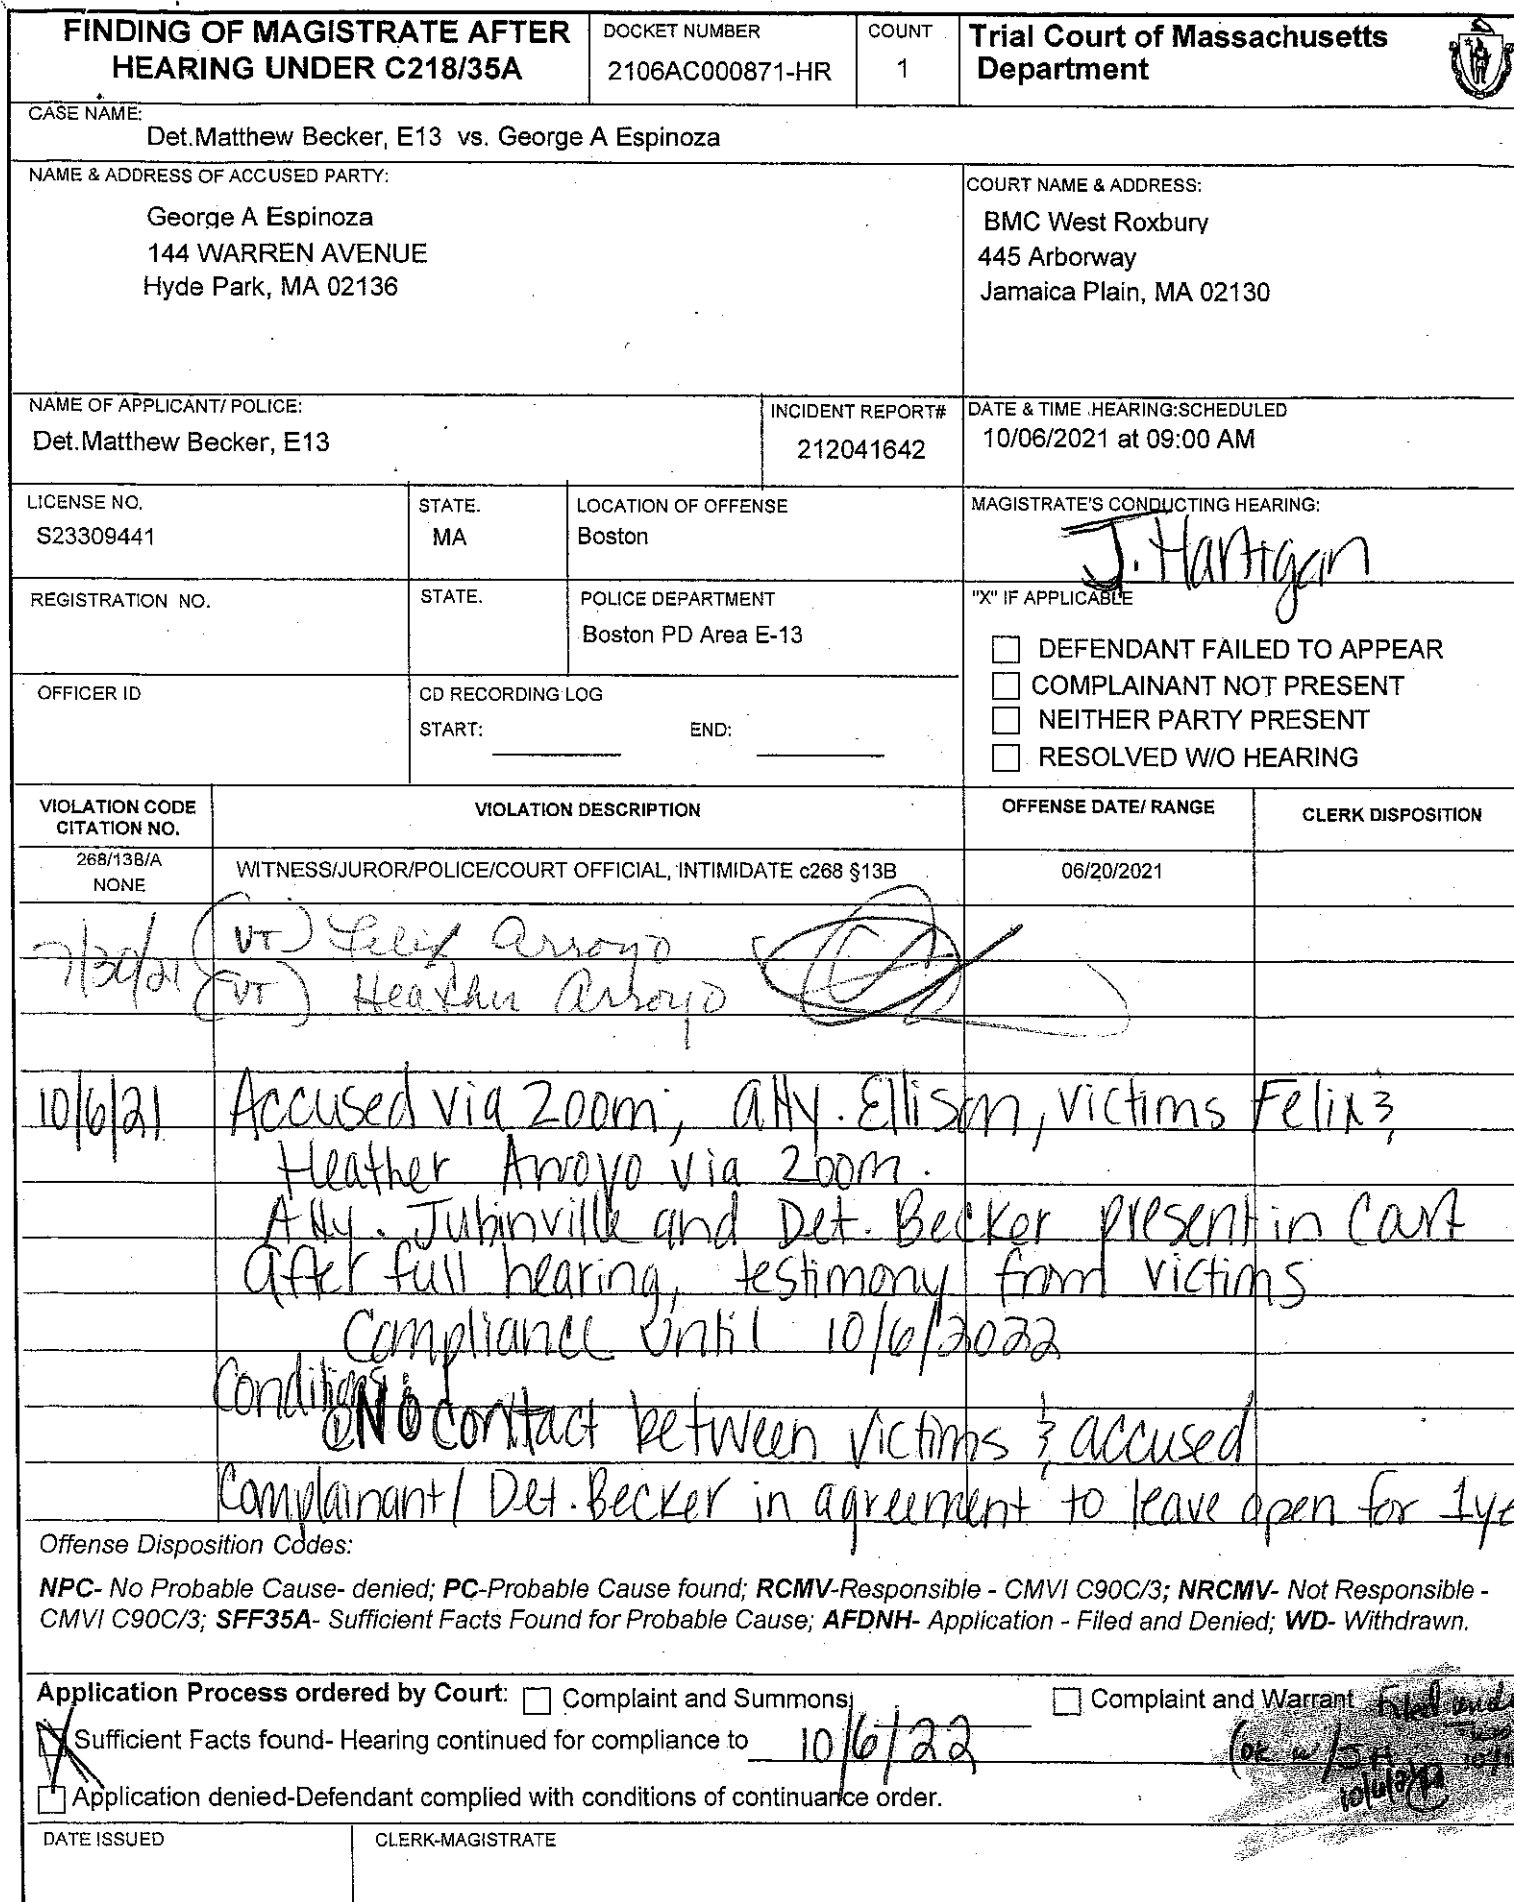 FINDING OF MAGISTRATE AFTER HEARING UNDER C218/35A
DOCKET NUMBER
2106AC000871-HR
COUNT
1
Trial Court of Massachusetts
Department
CASE NAME:
Det.Matthew Becker, E13 vs. George A Espinoza
NAME & ADDRESS OF ACCUSED PARTY:
George A Espinoza
144 WARREN AVENUE
Hyde Park, MA 02136
COURT NAME & ADDRESS:
BMC West Roxbury
445 Arborway
Jamaica Plain, MA 02130
NAME OF APPLICANT/ POLICE:
Det.Matthew Becker, E13
INCIDENT REPORT#
212041642
DATE & TIME HEARING:SCHEDULED
10/06/2021 at 09:00 AM
LICENSE NO.
S23309441
STATE.
MA
LOCATION OF OFFENSE
Boston
MAGISTRATE'S CONDUCTING HEARING:
J. Hartigan
REGISTRATION NO.
STATE.
POLICE DEPARTMENT
Boston PD Area E-13
"X" IF APPLICABLE
DEFENDANT FAILED TO APPEAR
COMPLAINANT NOT PRESENT
NEITHER PARTY PRESENT
RESOLVED W/O HEARING
OFFICER ID
CD RECORDING LOG
START:
END:
VIOLATION CODE
CITATION NO.
VIOLATION DESCRIPTION
OFFENSE DATE/ RANGE
CLERK DISPOSITION
268/13B/A
NONE
WITNESS/JUROR/POLICE/COURT OFFICIAL, INTIMIDATE c268 §13B
06/20/2021
(VT) Felix Arroyo
(VT) Heather Arroyo
10/6/21 Accused via Zoom; Atty. Ellison, victims Felix &
Heather Arroyo via Zoom.
Atty. Jubinville and Det. Becker present in Court
After full hearing, testimony from victims
Compliance until 10/6/2022
Conditions:
NO contact between victims & accused
Complainant/ Det. Becker in agreement to leave open for 1 ye
Offense Disposition Codes:
NPC- No Probable Cause- denied; PC-Probable Cause found; RCMV-Responsible - CMVI C90C/3; NRCMV- Not Responsible -
CMVI C90C/3; SFF35A- Sufficient Facts Found for Probable Cause; AFDNH- Application - Filed and Denied; WD- Withdrawn.
Application Process ordered by Court: Complaint and Summons Complaint and Warrant
Sufficient Facts found- Hearing continued for compliance to 10/6/22
Application denied-Defendant complied with conditions of continuance order.
DATE ISSUED
CLERK-MAGISTRATE